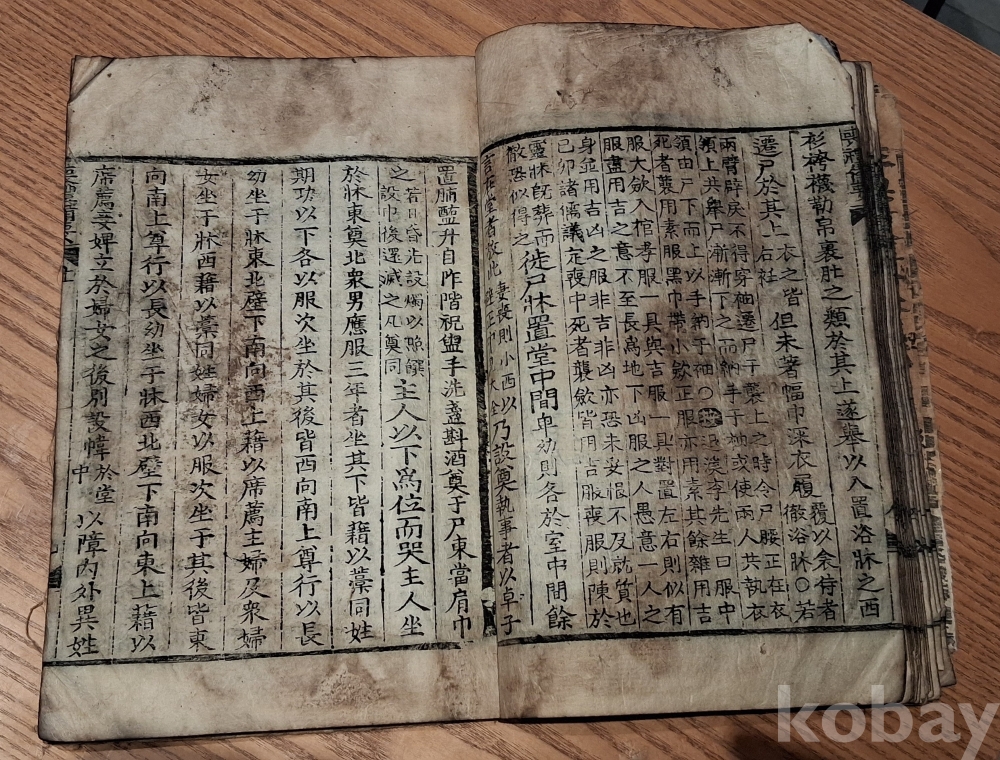 衫袴襪勒帛裹肚之類於其上遂舉以入置浴牀之西
遷尸於其上衣之皆右衽但未著幅巾深衣履覆以衾侍者徹浴牀○若
兩臂辟戾不得穿袖遷尸于襲上之時令尸腰正在衣
領上共舉尸漸漸下之而納手于袖或使兩人共執衣
領由尸下而上以手納于袖○退溪李先生曰服中
死者襲用素服黑巾帶小斂正服亦用素其餘雜用吉
服大斂入棺孝服一具與吉服一具對置左右則似有
服盡用吉之意不至長爲地下凶服之人愚意一人之
身並用吉凶之服非吉非凶亦恐未安恨不及就質也
己卯諸儒議定喪中死者襲斂皆用吉服喪服則陳於
靈牀旣葬而徹恐似得之徙尸牀置堂中間卑幼則各於室中間餘
言在堂者放此妻喪則小西以乃設奠執事者以卓子
置脯醢升自阼階祝盥手洗盞斟酒奠于尸東當肩巾
之若日昏先設燭以照饌設巾後遂滅之凡奠同主人以下爲位而哭主人坐
於牀東奠北衆男應服三年者坐其下皆藉以藁同姓
期功以下各以服次坐於其後皆西向南上尊行以長
幼坐于牀東北壁下南向西上藉以席薦主婦及衆婦
女坐于牀西藉以藁同姓婦女以服次坐于其後皆東
向南上尊行以長幼坐于牀西北壁下南向東上藉以
席薦妾婢立於婦女之後別設幃於堂中以障內外異姓
kobay